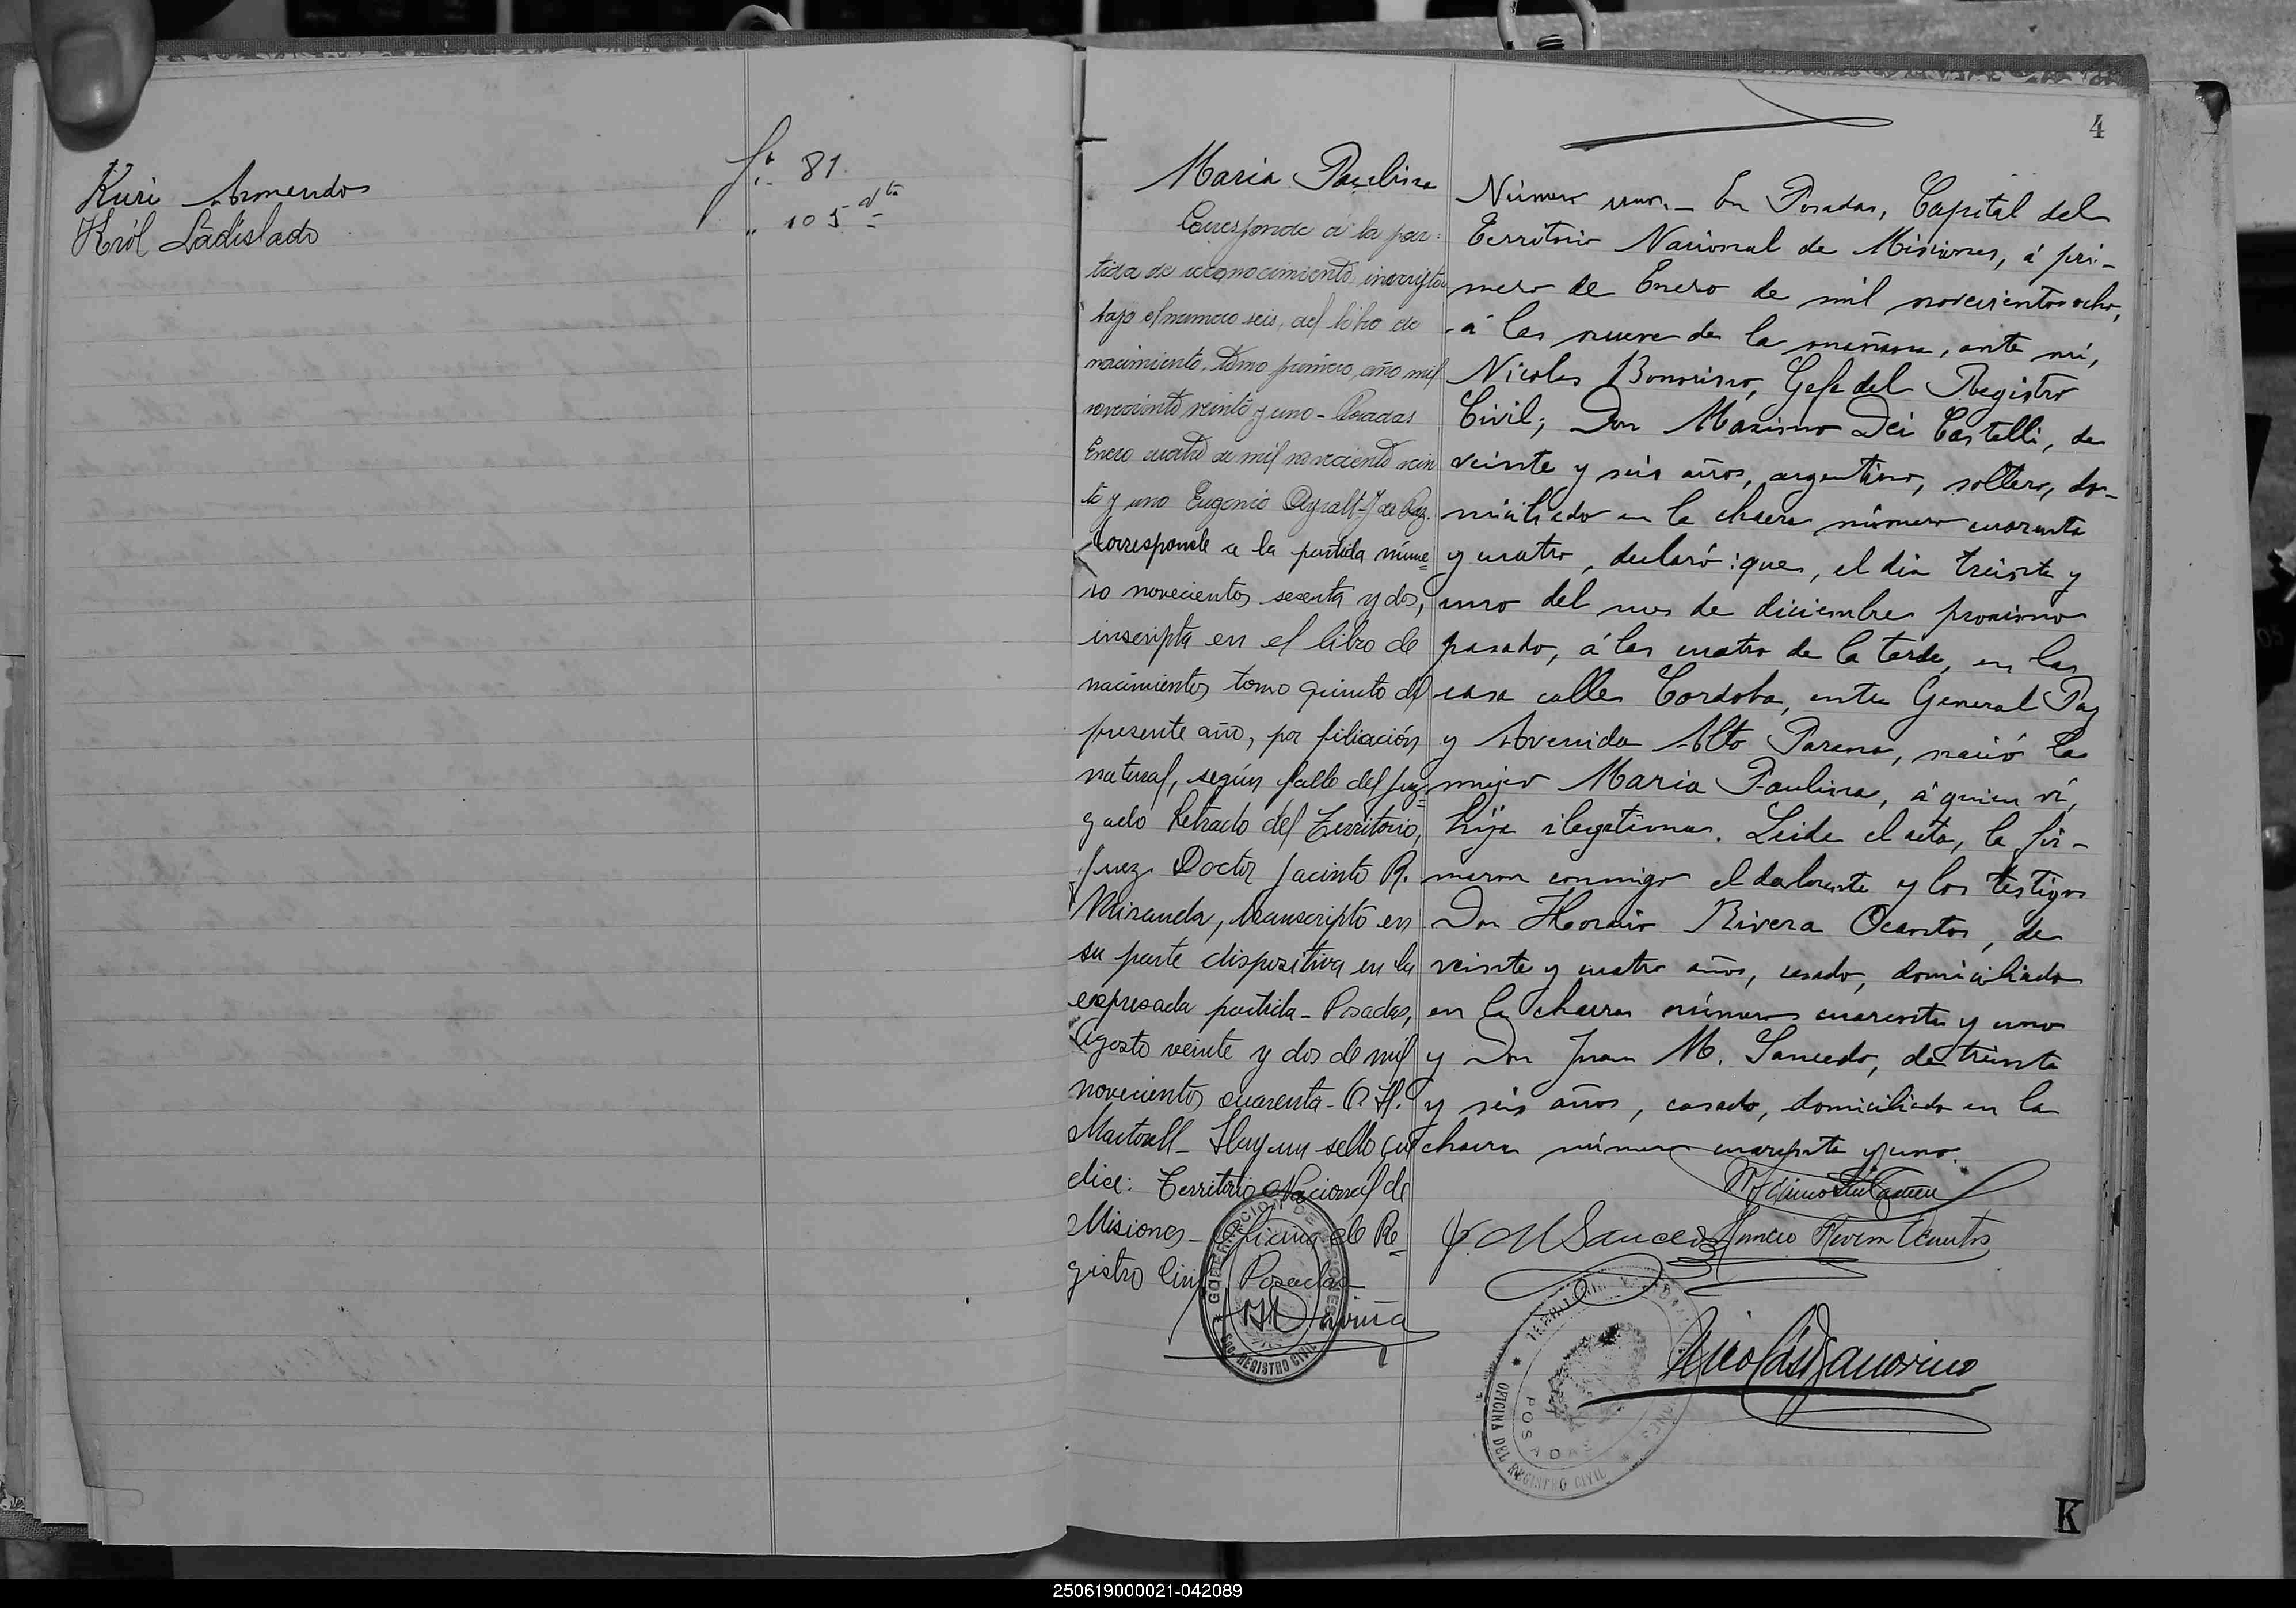 Kuri Armando fs. 81.
Król Ladislado " 105 vta
4
Maria Paulina
Corresponde á la par-
tida de reconocimiento inscripta
bajo el numero seis, del libro de
nacimiento, tomo primero, año mil
novecientos veinte y uno - Posadas
Enero cuatro de mil novecientos vein
te y uno Eugenio Ayralt - J. de Paz.
Corresponde a la partida núme=
ro novecientos sesenta y dos,
inscripta en el libro de
nacimientos tomo quinto del
presente año, por filiación
natural, según fallo del Juz=
gado Letrado del Territorio,
Juez Doctor Jacinto R.
Miranda, transcripto en
su parte dispositiva en la
expresada partida - Posadas,
Agosto veinte y dos de mil
novecientos cuarenta - O. H.
Martorell - Hay un sello que
dice: Territorio Nacional de
Misiones - Oficina de Re=
gistro Civil Posadas
GOBERNACION DE MISIONES
REGISTRO CIVIL
Número uno. - En Posadas, Capital del
Territorio Nacional de Misiones, á pri-
mero de Enero de mil novecientos ocho,
á las nueve de la mañana, ante mí,
Nicolas Bonorino, Gefe del Registro
Civil; Don Maximo Dei Castelli, de
veinte y seis años, argentino, soltero, do-
miciliado en la chacra número cuarenta
y cuatro, declaró: que, el dia treinta y
uno del mes de diciembre proximo
pasado, á las cuatro de la tarde, en la
casa calle Cordoba, entre General Paz
y Avenida Alto Parana, nació la
mujer Maria Paulina, á quien ví,
hija ilegitima. Leida el acta, la fir-
maron conmigo el declarante y los testigos
Don Horacio Rivera Ocantos, de
veinte y cuatro años, casado, domiciliado
en la chacra número cuarenta y uno
y Don Juan M. Saucedo, de treinta
y seis años, casado, domiciliado en la
chacra número cuarenta y uno.
J. M Saucedo Horacio Rivera Ocantos
Nicolás Bonorino
TERRITORIO NACIONAL
OFICINA DEL REGISTRO CIVIL
POSADAS
K
250619000021-042089